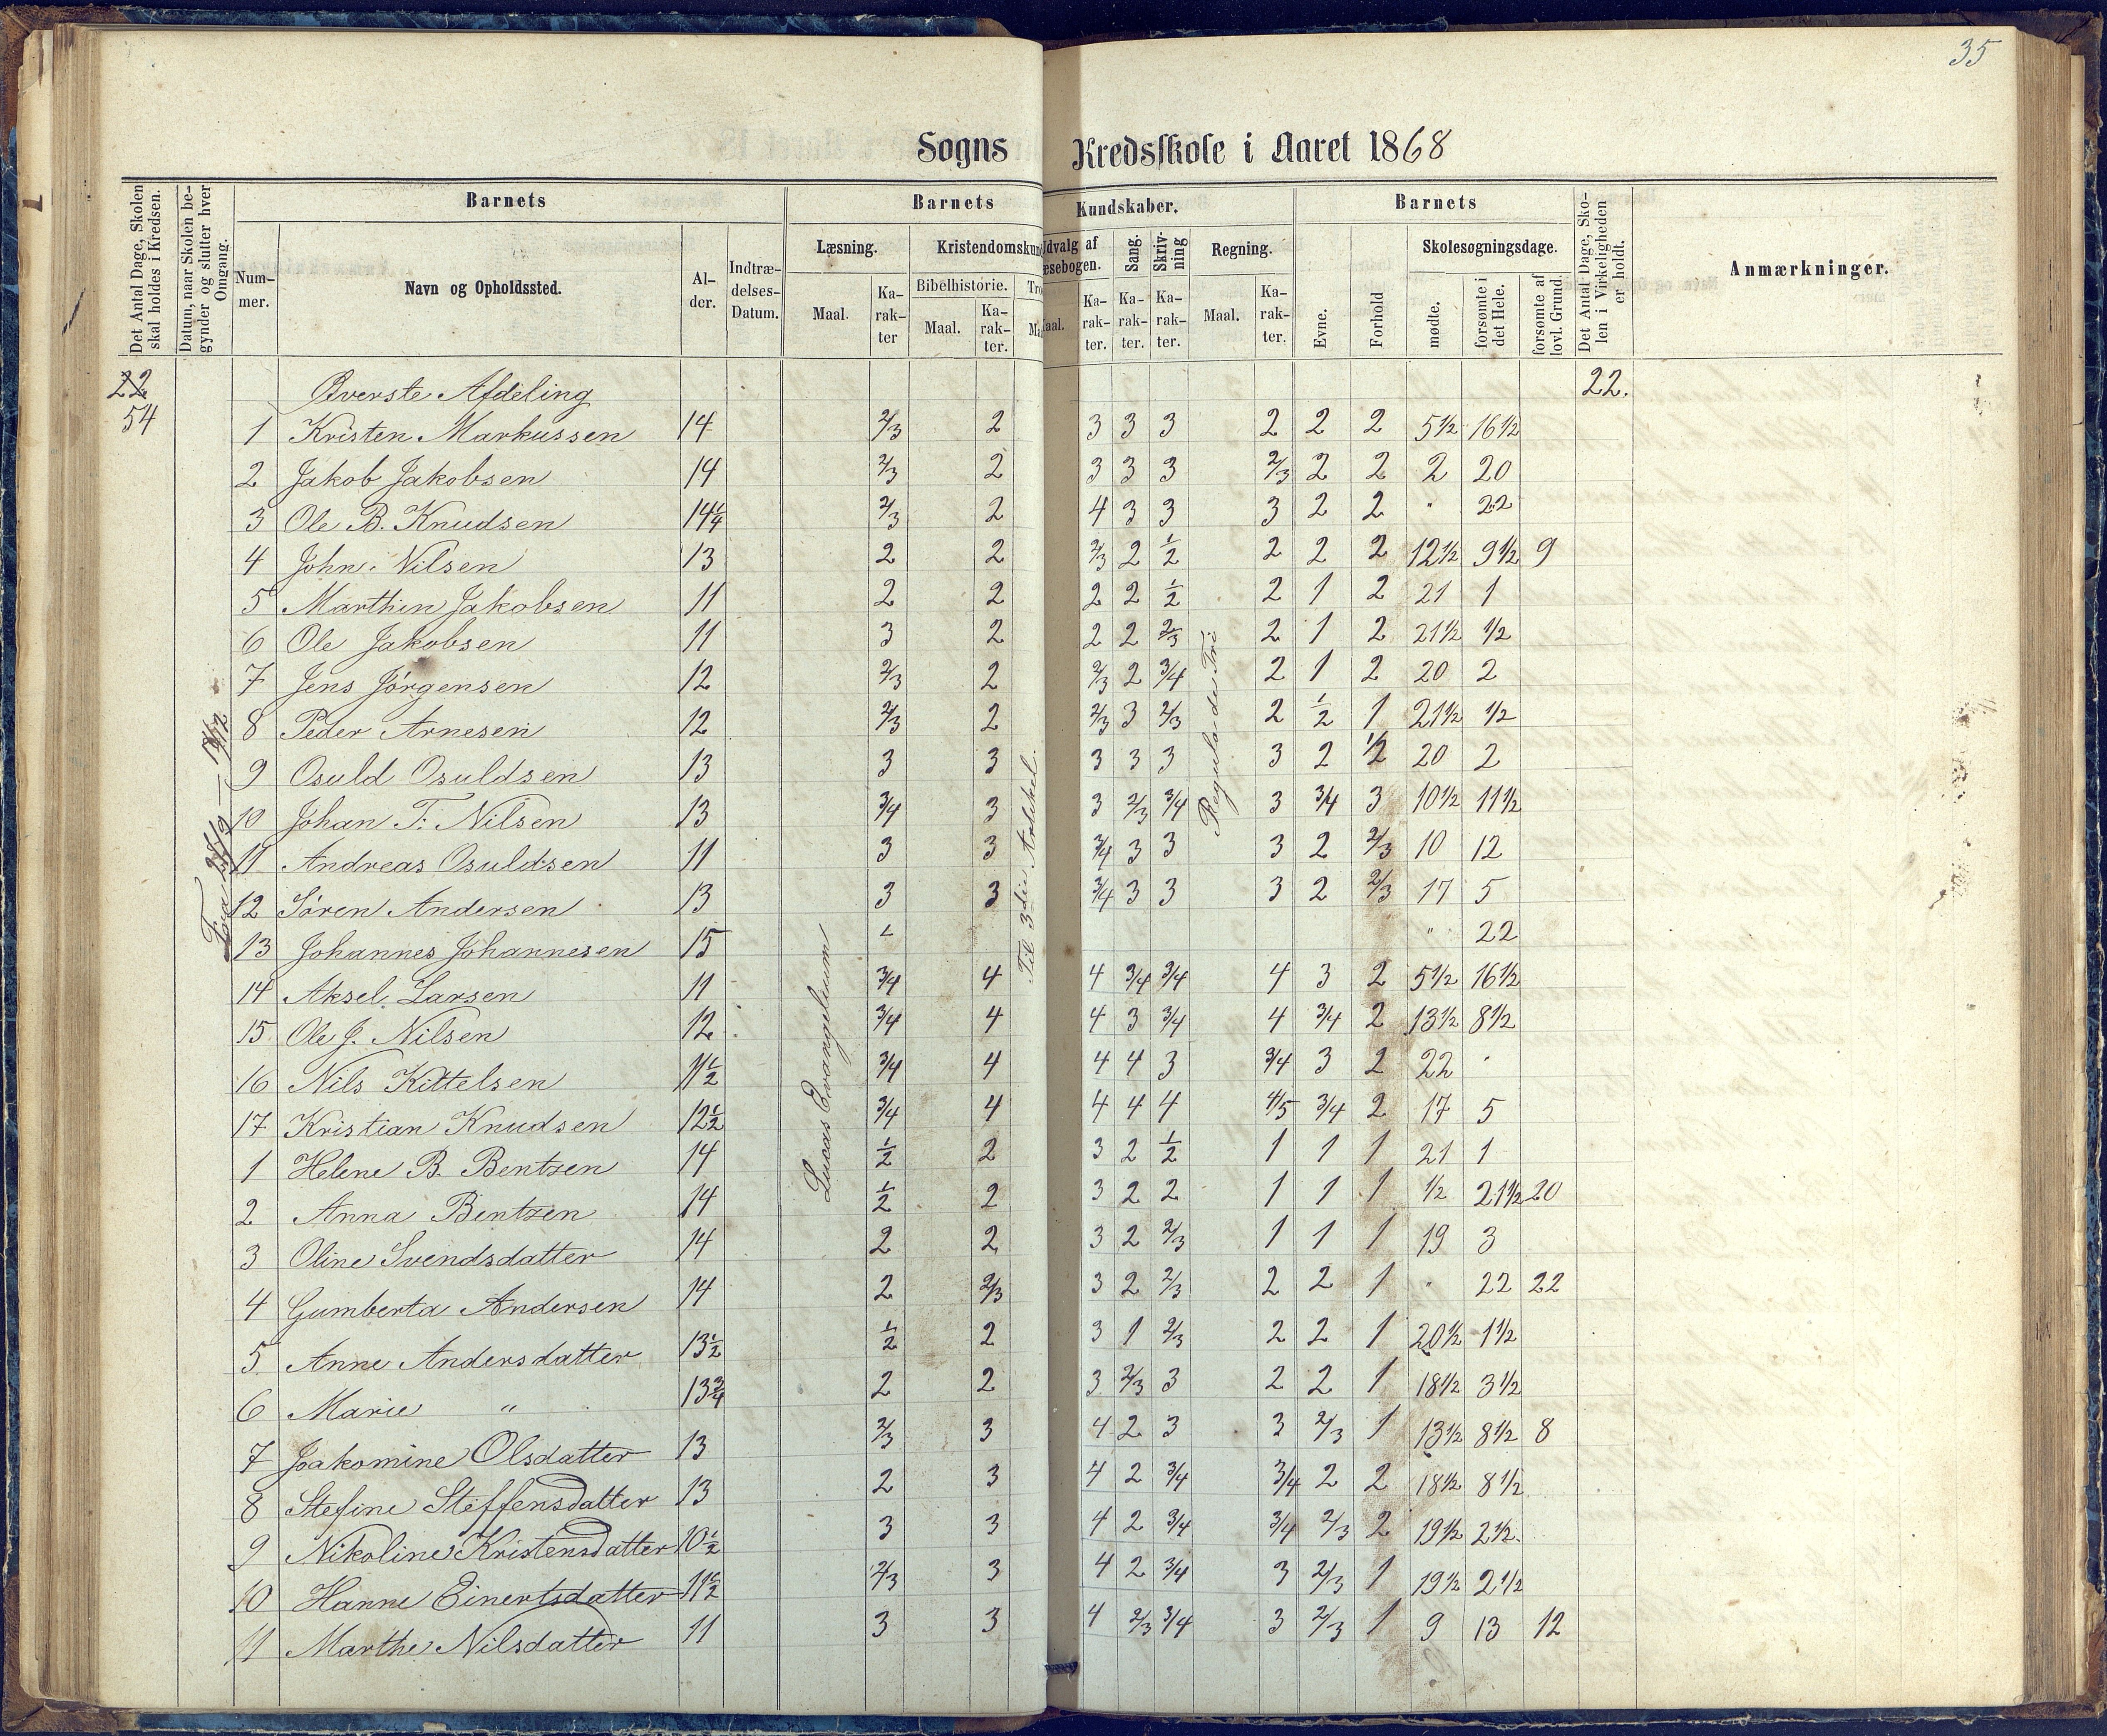 35
Sogns Kredsskole i Aaret 1868
Det Antal Dage, Skolen skal holdes i Kredsen.
Datum, naar Skolen begynder og slutter hver Omgang.
Barnets
Barnets
Kundskaber.
Barnets
Det Antal Dage, Skolen i Virkeligheden er holdt.
Anmærkninger.
Nummer.
Navn og Opholdssted.
Alder.
Indtrædelses-Datum.
Læsning.
Kristendomskun
Udvalg af
æsebogen.
Sang.
Skrivning
Regning.
Evne.
Forhold
Skolesøgningsdage.
Bibelhistorie.
Tro
Maal.
Karakter
Maal.
Karakter.
Ma
aal.
Karakter.
Karakter.
Karakter.
Maal.
Karakter.
mødte.
forsømte i det Hele.
forsømte af lovl. Grund.
22 Øverste Afdeling 22.
54
1 Kristen Markussen 14 2/3 2 3 3 3 2 2 2 5 1/2 16 1/2
2 Jakob Jakobsen 14 2/3 2 3 3 3 2/3 2 2 2 20
3 Ole B. Knudsen 14 1/4 2/3 2 4 3 3 3 2 2 " 22
4 John Nilsen 13 2 2 2/3 2 1/2 2 2 2 12 1/2 9 1/2 9
5 Marthin Jakobsen 11 2 2 2 2 1/2 2 1 2 21 1
6 Ole Jakobsen 11 3 2 2 2 2/3 2 1 2 21 1/2 1/2
7 Jens Jörgensen 12 2/3 2 2/3 2 3/4 2 1 2 20 2
8 Peder Arnesen 12 2/3 2 2/3 3 2/3 2 1/2 1 21 1/2 1/2
9 Osuld Osuldsen 13 3 3 3 3 3 3 2 1/2 20 2
10 Johan T. Nilsen 13 3/4 3 3 2/3 3/4 3 3/4 3 10 1/2 11 1/2
11 Andreas Osuldsen 11 3 3 3/4 3 3 3 2 2/3 10 12
12 Sören Andersen 13 3 3 3/4 3 3 3 2 2/3 17 5
13 Johannes Johannesen 15 " 22
14 Aksel Larsen 11 3/4 4 4 3/4 3/4 4 3 2 5 1/2 16 1/2
15 Ole J. Nilsen 12 3/4 4 4 3 3/4 4 3/4 2 13 1/2 8 1/2
16 Nils Kittelsen 11 1/2 3/4 4 4 4 3 3/4 3 2 22 "
17 Kristian Knudsen 12 1/2 3/4 4 4 4 4 4/5 3/4 2 17 5
1 Helene B. Bentzen 14 1/2 2 3 2 1/2 1 1 1 21 1
2 Anna Bentzen 14 1/2 2 3 2 2 1 1 1 1/2 21 1/2 20
3 Oline Svendsdatter 14 2 2 3 2 2/3 1 1 1 19 3
4 Gumberta Andersen 14 2 2/3 3 2 2/3 2 2 1 " 22 22
5 Anne Andersdatter 13 1/2 1/2 2 3 1 2/3 2 2 1 20 1/2 1 1/2
6 Marie " 13 3/4 2 2 3 2/3 3 2 2 1 18 1/2 3 1/2
7 Joakomine Olsdatter 13 2/3 3 4 2 3 3 2/3 1 13 1/2 8 1/2 8
8 Stefine Steffensdatter 13 2 3 4 2 3/4 3/4 2 2 18 1/2 8 1/2
9 Nikoline Kristensdatter 10 1/2 3 3 4 2 3/4 3/4 2/3 2 19 1/2 2 1/2
10 Hanne Einertsdatter 11 1/2 2/3 3 4 2 3/4 3 2/3 1 19 1/2 2 1/2
11 Marthe Nilsdatter 11 3 3 4 2/3 3/4 3 2/3 1 9 13 12
Lucas Evangelium
Til 3die Artikel.
Regula de Tri